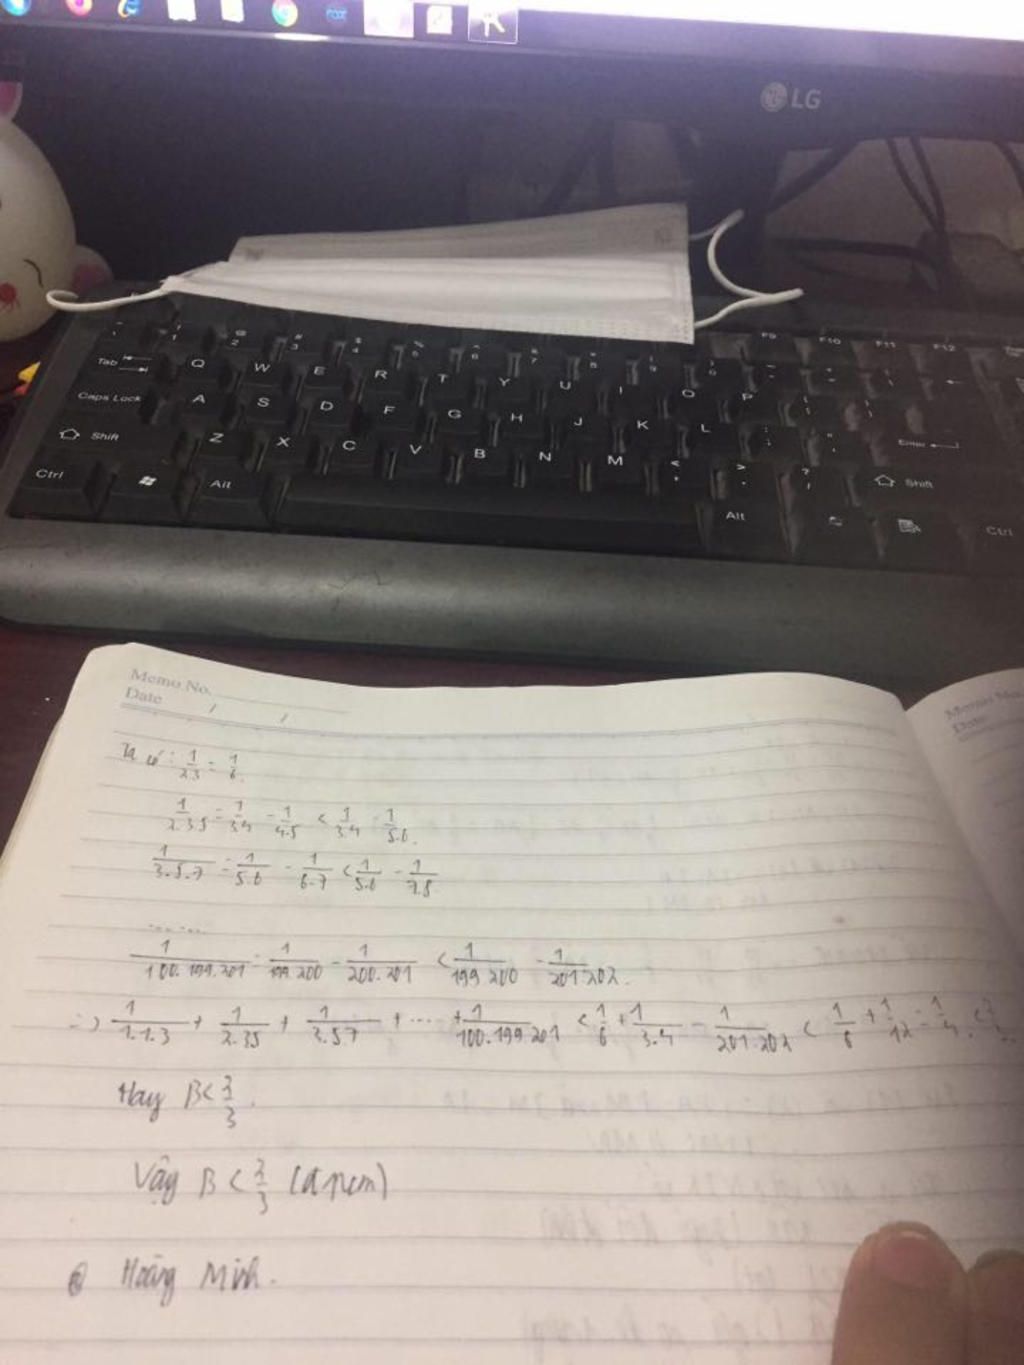 LG
F9 F10 F11 F12
Tab Q W E R T Y U I O P
Caps Lock A S D F G H J K L Enter
Shift Z X C V B N M Shift
Ctrl Alt Alt Ctrl
Memo No.
Date / /
Memo No.
Date
Ta có: 1/2.3 = 1/6.
1/2.3.5 = 1/3.4 - 1/4.5 < 1/3.4 - 1/5.6.
1/3.5.7 = 1/5.6 - 1/6.7 < 1/5.6 - 1/7.8
... ...
1/100.199.201 = 1/199.200 - 1/200.201 < 1/199.200 - 1/201.202.
=> 1/1.1.3 + 1/2.3.5 + 1/3.5.7 + ... + 1/100.199.201 < 1/6 + 1/3.4 - 1/201.202 < 1/6 + 1/12 = 1/4 <
Hay B < 2/3.
Vậy B < 2/3 (đpcm)
@ Hoàng Minh.